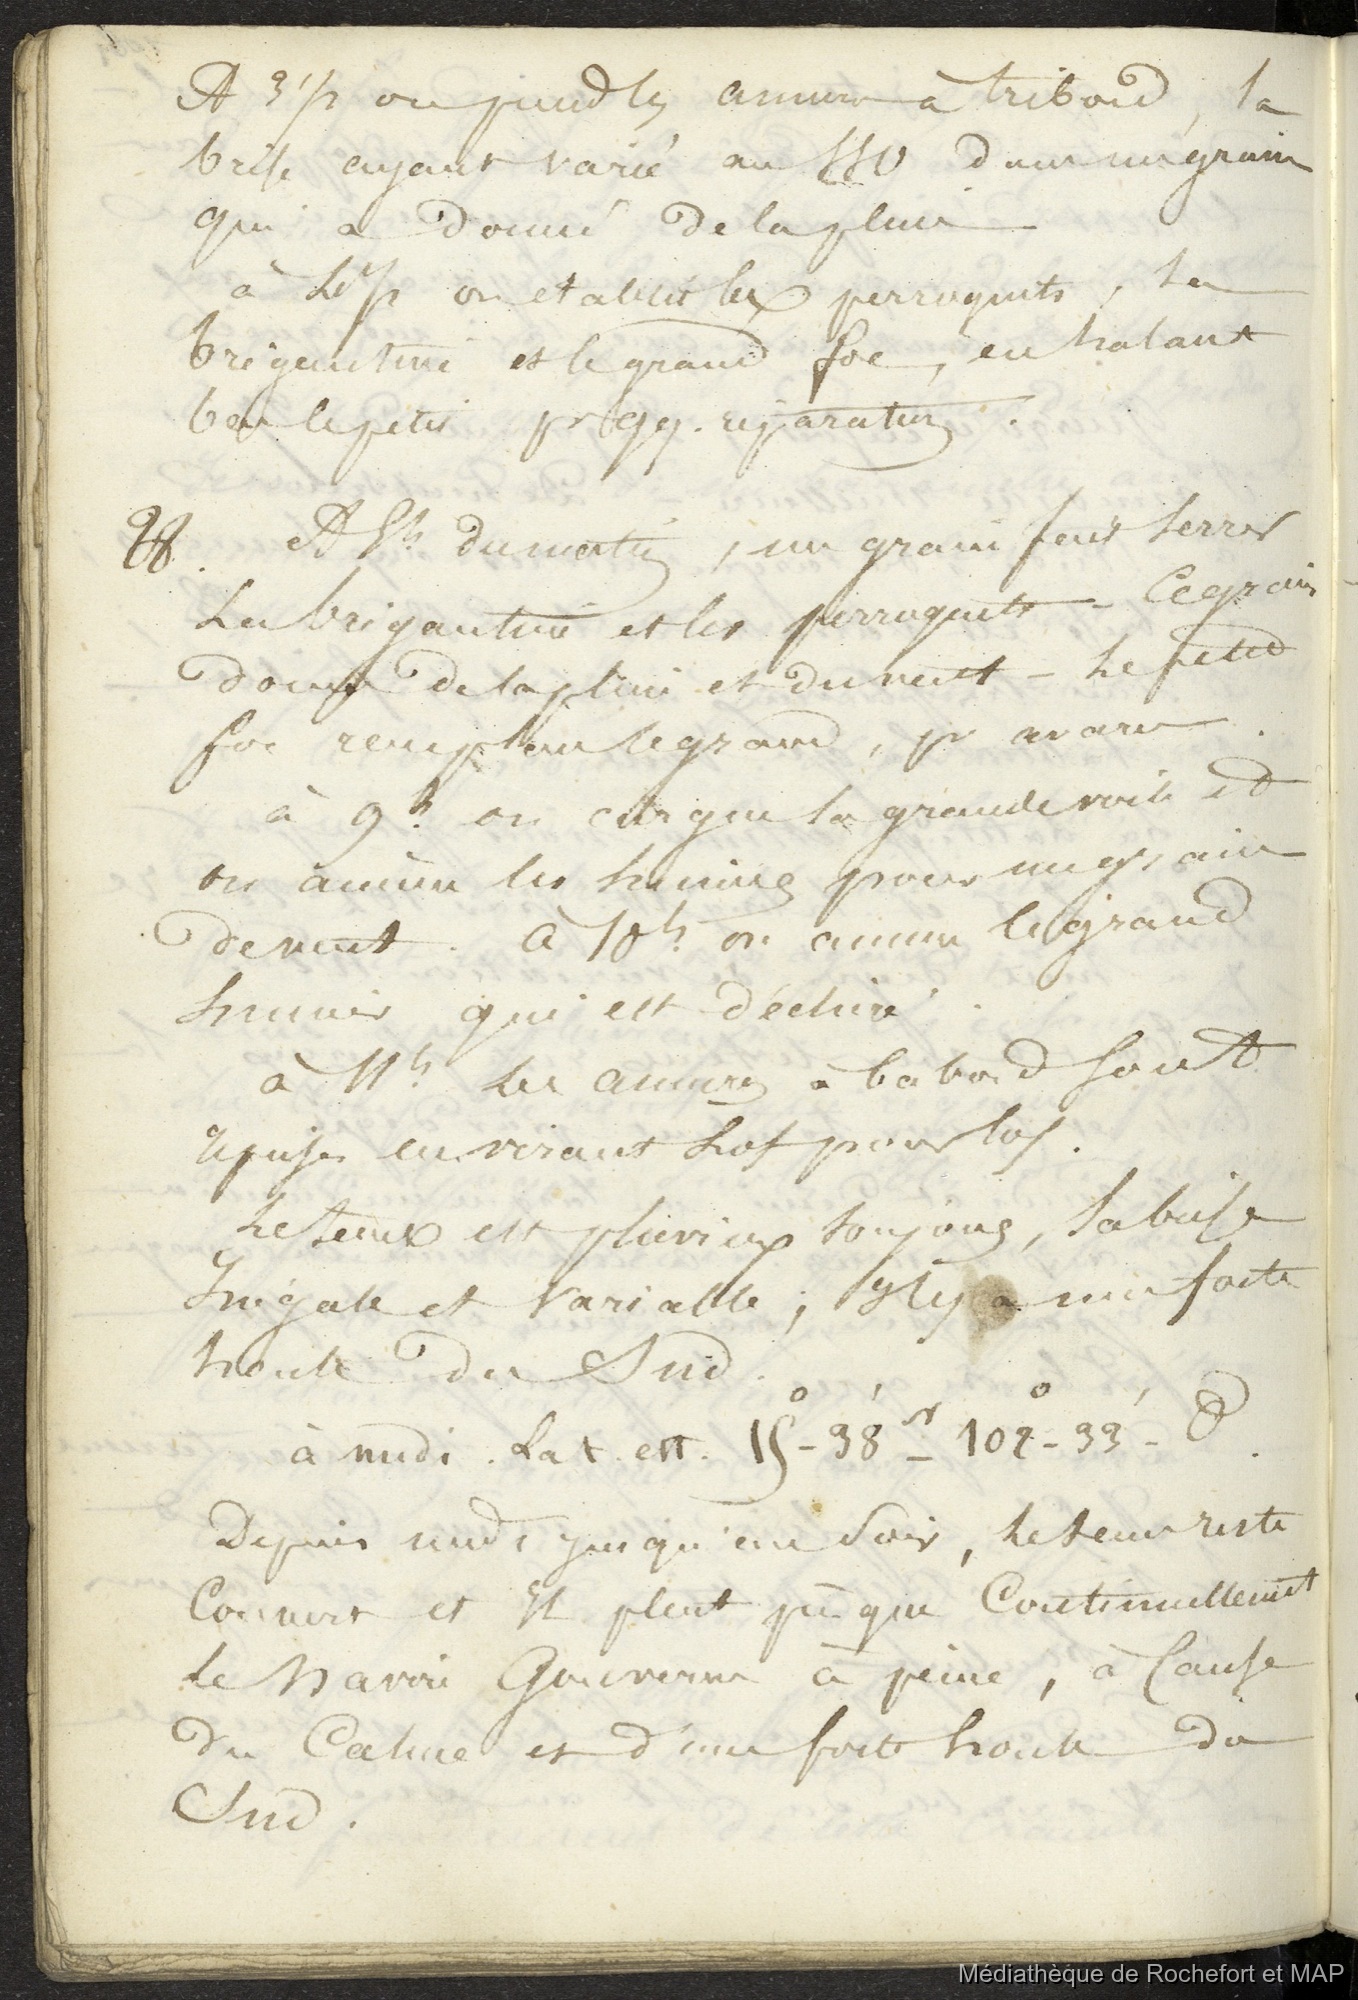 A 3 ½ on prend les amures à tribord, la
brise ayant varié au SSO dans un grain
qui a donné de la pluie
à 4 ½ on établit les perroquets, la
brigantine et le grand foc, en halant
bas le petit pr qq. réparations.
28. A 5h du matin, un grain fait serrer
La brigantine et les perroquets – Ce grain
donne de la pluie et du vent – Le petit
foc remplace le grand, pr avarie.
à 9h on cargue la grande voile et
on amène les huniers pour un grain
de vent. à 10h on amène le grand
hunier qui est déchiré.
à 11h Les amures à babord sont
reprises en virant lof pour lof.
Le temps est pluvieux toujours, la brise
Inégale et variable ; Il y a une forte
houle du Sud.
à midi. Lat. est. 15°-38' N – 102°-33' – O.
Depuis midi jusqu'au soir, le tems reste
Couvert et Il pleut presque Continuellement
Le Navire Gouverne à peine, à Cause
du Calme et d'une forte houle du
Sud.
Médiathèque de Rochefort et MAP